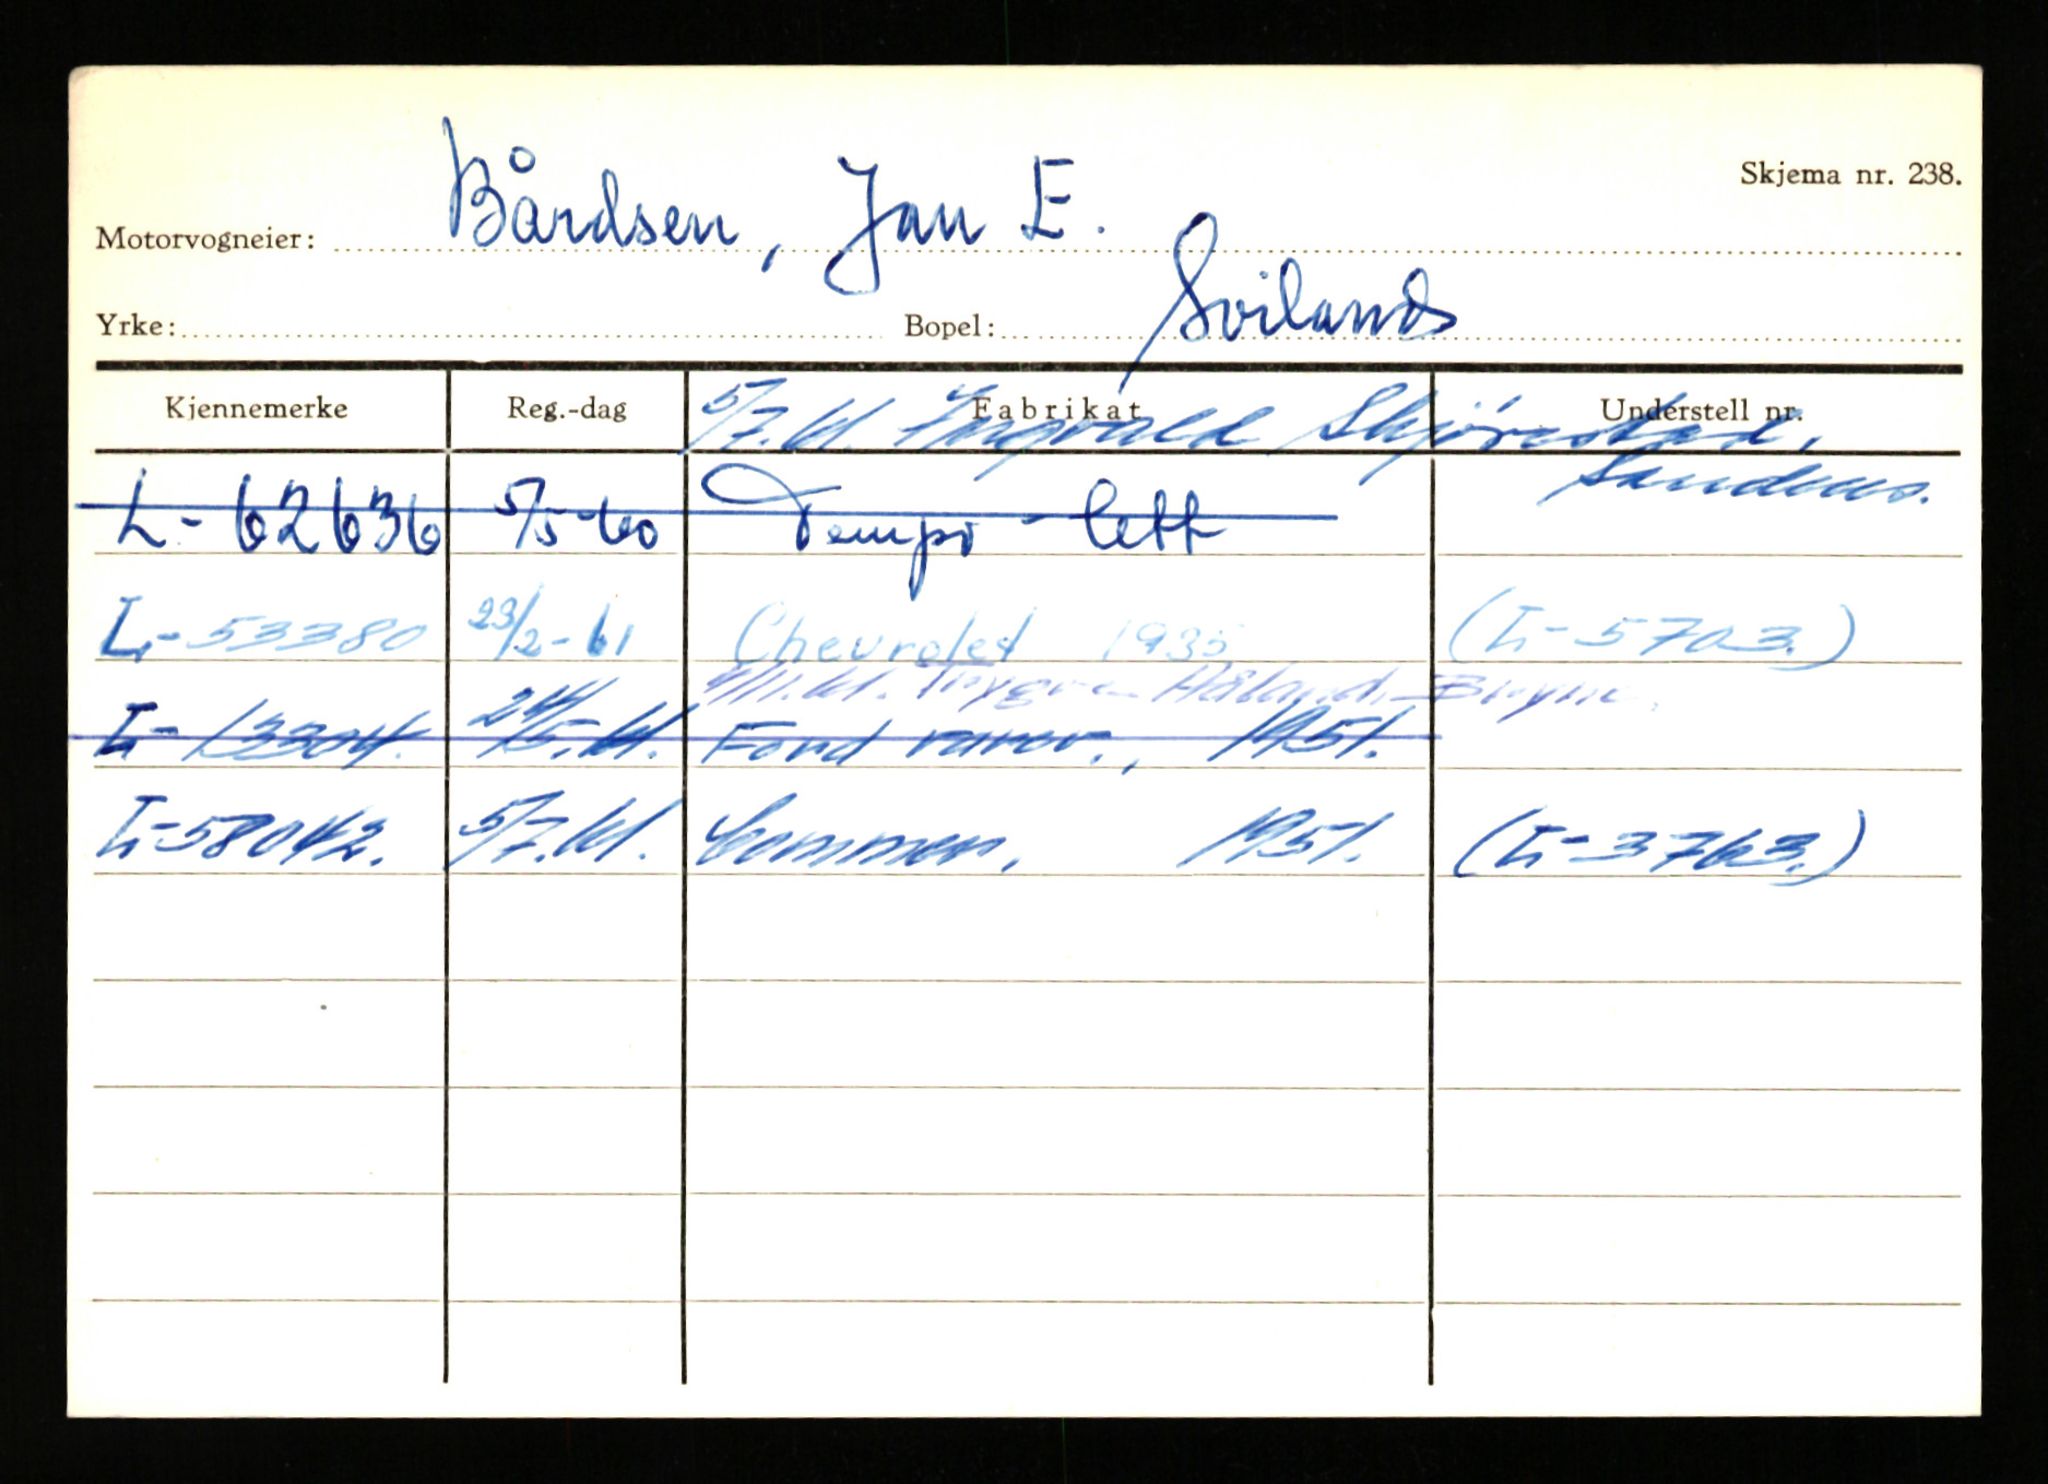 Skjema nr. 238.
Motorvogneier: Bårdsen, Jan E.
Yrke: Bopel: Svilands
Kjennemerke Reg.-dag Fabrikat Understell nr.
5/7.61. Ingvald Skjørestad,
Sandnes.
L-62636 5/5-60 Tempo-lett
L-53380 23/2-61 Chevrolet 1935 (L-5703.)
Trygve Håland, Bryne.
L-13304. 24/5.61. Ford varev., 1951.
L-58042. 5/7.61. Commer, 1951. (L-3763.)